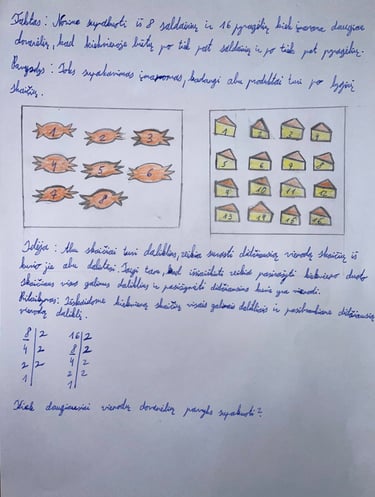 Faktas: Norime supakuoti iš 8 saldainių ir 16 pyragėlių kiek įmanoma daugiau
dovanėlių, kad kiekvienoje būtų po tiek pat saldainių ir po tiek pat pyragėlių.
: Toks supakavimas įmanomas, kadangi abu produktai turi po lyginį
skaičių.
1 2 3
4 5 6
7 8
1 2 3 4
5 6 7 8
9 10 11 12
13 14 15 16
Idėja: Abu skaičiai turi daliklius, reikia surasti didžiausią vienodą skaičių iš
kurio jie abu dalintųsi. Taigi tam, kad išsiaiškinti reikia pasirašyti kiekvieno duoto
skaičiaus visus galimus daliklius ir pasižymėti didžiausius kurie yra vienodi.
: Išskaidome kiekvieną skaičių visais galimais dalikliais ir pasibraukiame didžiausią
vienodą daliklį.
8 | 2 16 | 2
4 | 2 8 | 2
2 | 2 4 | 2
1 2 | 2
1
Kiek daugiausiai vienodų dovanėlių pavyks supakuoti?